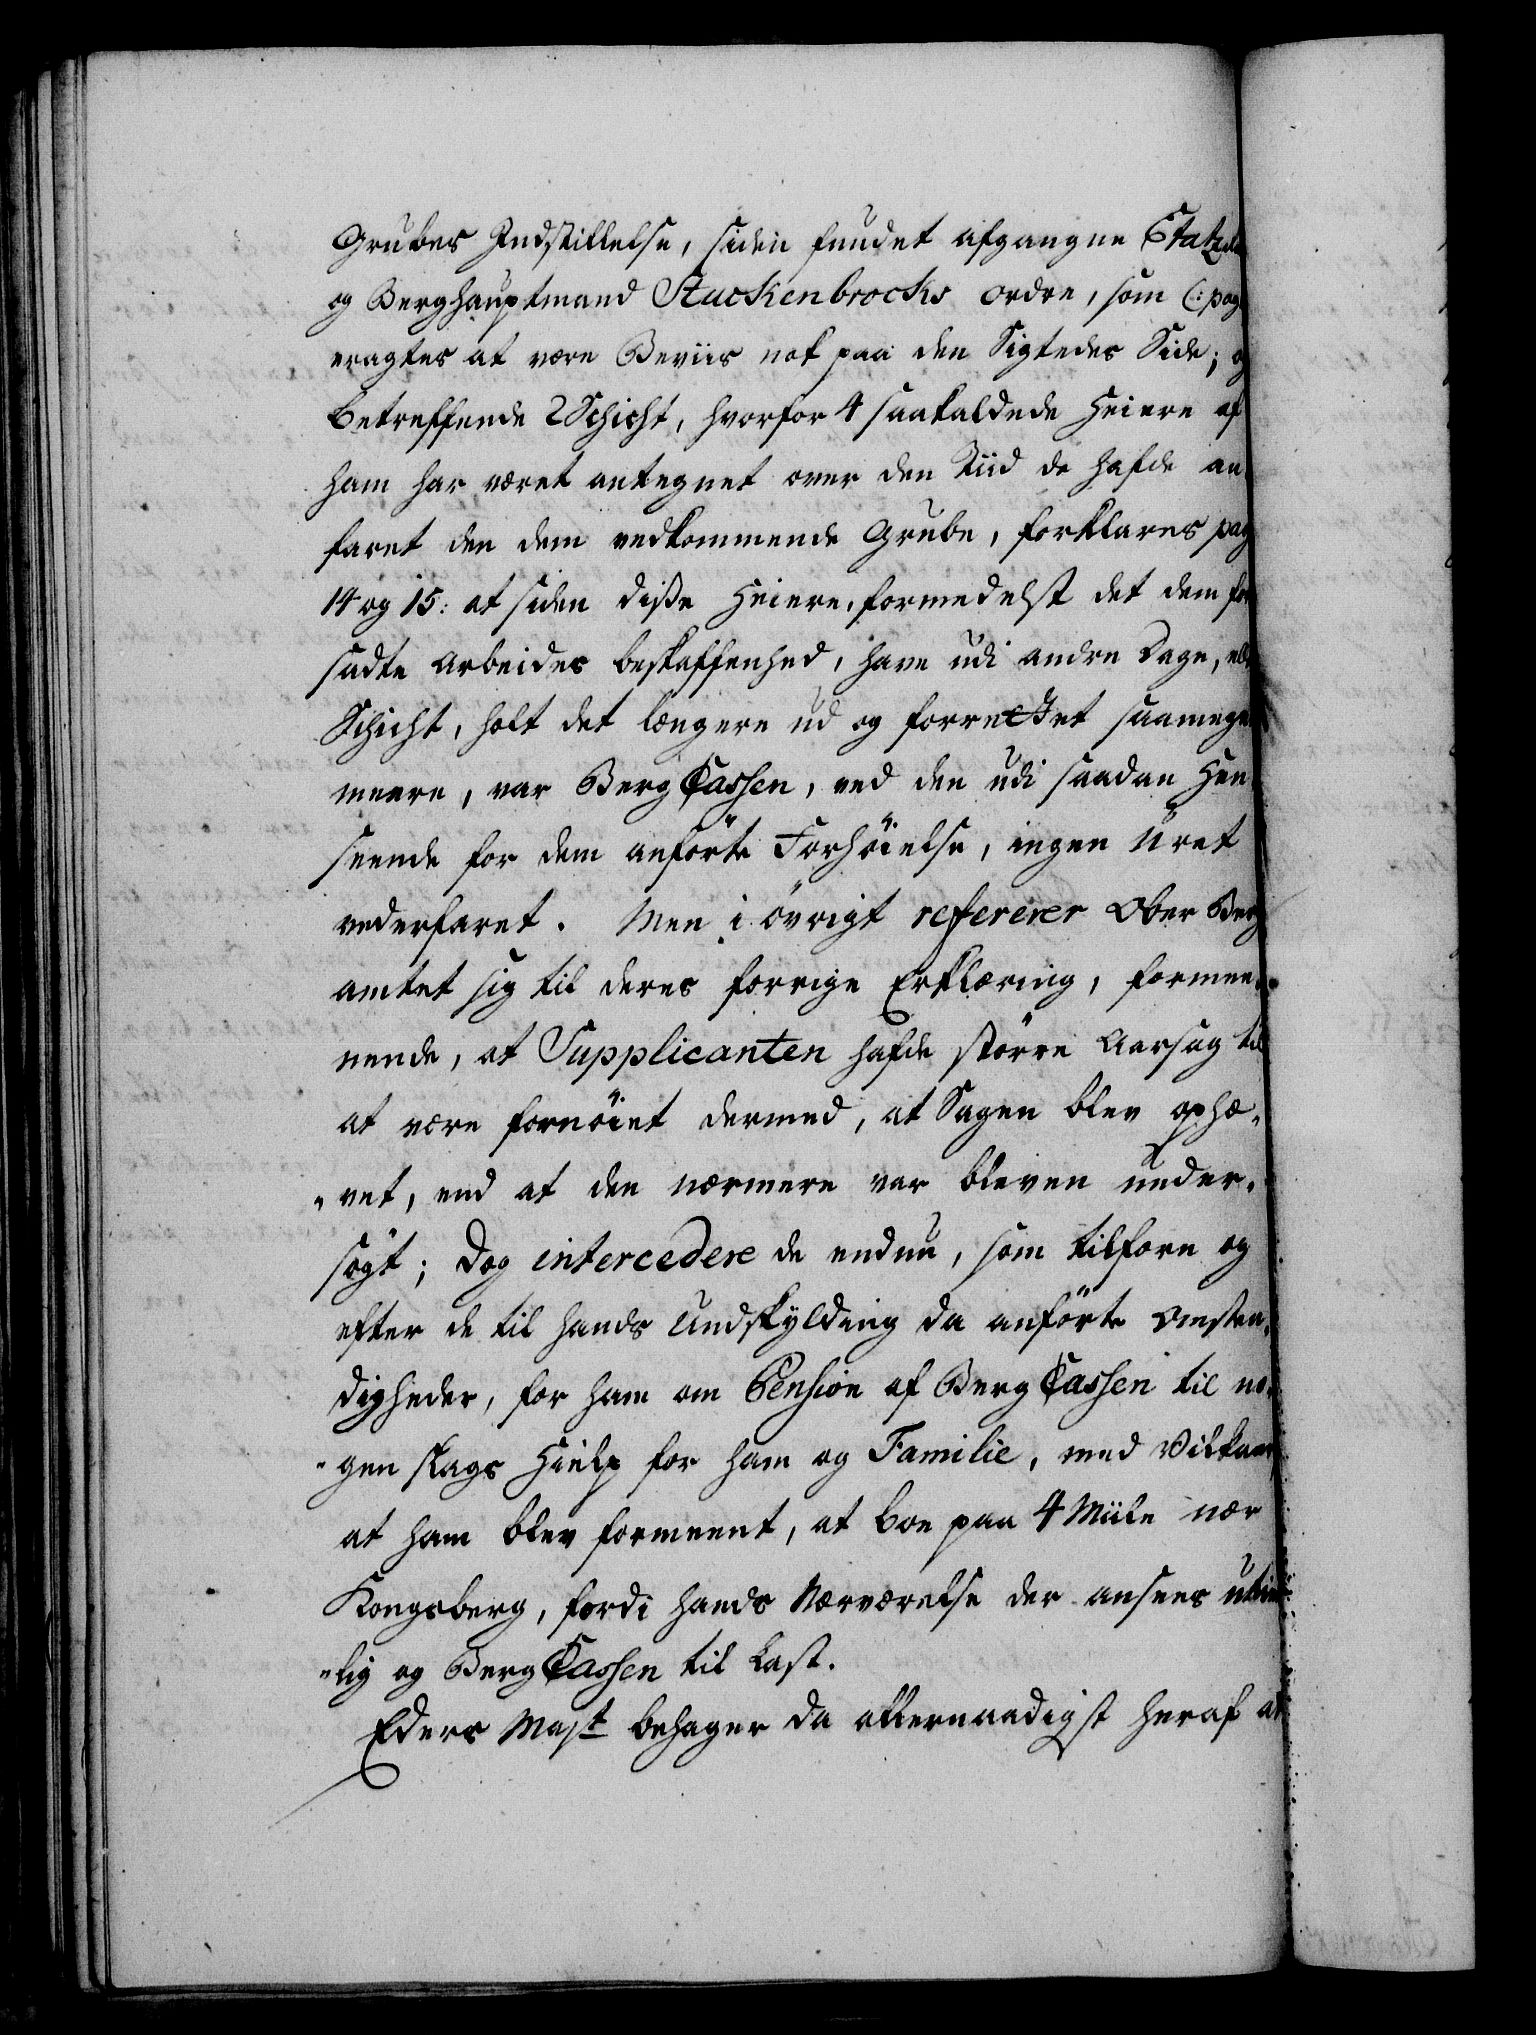 Grubes Indstillelse, siden fundet afgangne Etatz
og Berghauptmand Stuckenbrocks ordre, som (: pag
eragtes at være Beviis nok paa den Sigtedes Side; og
betreffende 2 Schicht, hvorfor 4 saakaldede Heiere af
ham har været antegnet over den Tiid de hafde an
faret den dem vedkommende Grube, forklares pag
14 og 15: at siden diße Heiere, formedelst det dem for
sadte Arbeides beskaffenhed, have udi andre Dage, eller
Schicht, holt det længere ud og forrettet saameget
meere, var Berg Cassen, ved den udi saadan Hen
seende for dem anførte Forhøielse, ingen Uret
vederfaret. Men i øvrigt refererer Ober Berg
amtet sig til deres forrige Erklæring, formee-
nende, at Supplicanten hafde større Aarsag til
at være fornøiet dermed, at Sagen blev ophæ-
vet, end at den nærmere var bleven under-
søgt; Dog intercedere de endnu, som tilforn og
efter de til hands Undskylding da anførte omstæn-
digheder, for ham om Pension af Berg Cassen til no-
gen slags Hielp for ham og Familie, med Vilkaar
at ham blev formeent, at boe paa 4 Miile nær
Kongsberg, fordi hands Nærværelse der ansees utien
lig og Berg Cassen til Last.
Eders Majt behager da allernaadigst heraf at